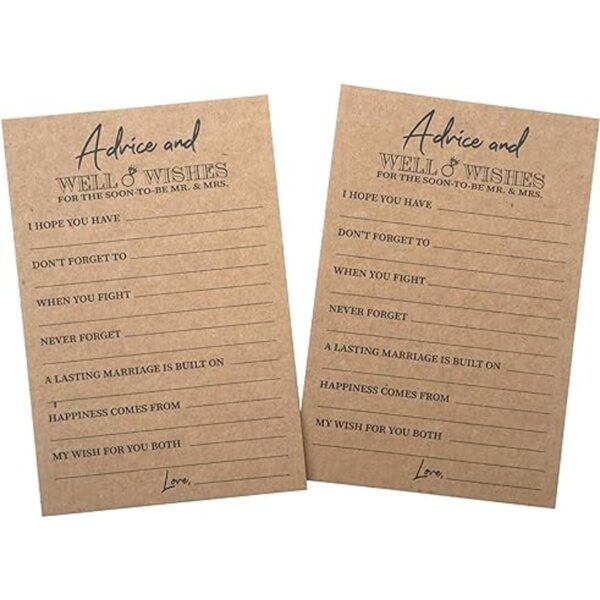 Advice and
WELL WISHES
FOR THE SOON-TO-BE MR. & MRS.
I HOPE YOU HAVE
DON'T FORGET TO
WHEN YOU FIGHT
NEVER FORGET
A LASTING MARRIAGE IS BUILT ON
HAPPINESS COMES FROM
MY WISH FOR YOU BOTH
Love,
Advice and
WELL WISHES
FOR THE SOON-TO-BE MR. & MRS.
I HOPE YOU HAVE
DON'T FORGET TO
WHEN YOU FIGHT
NEVER FORGET
A LASTING MARRIAGE IS BUILT ON
HAPPINESS COMES FROM
MY WISH FOR YOU BOTH
Love,